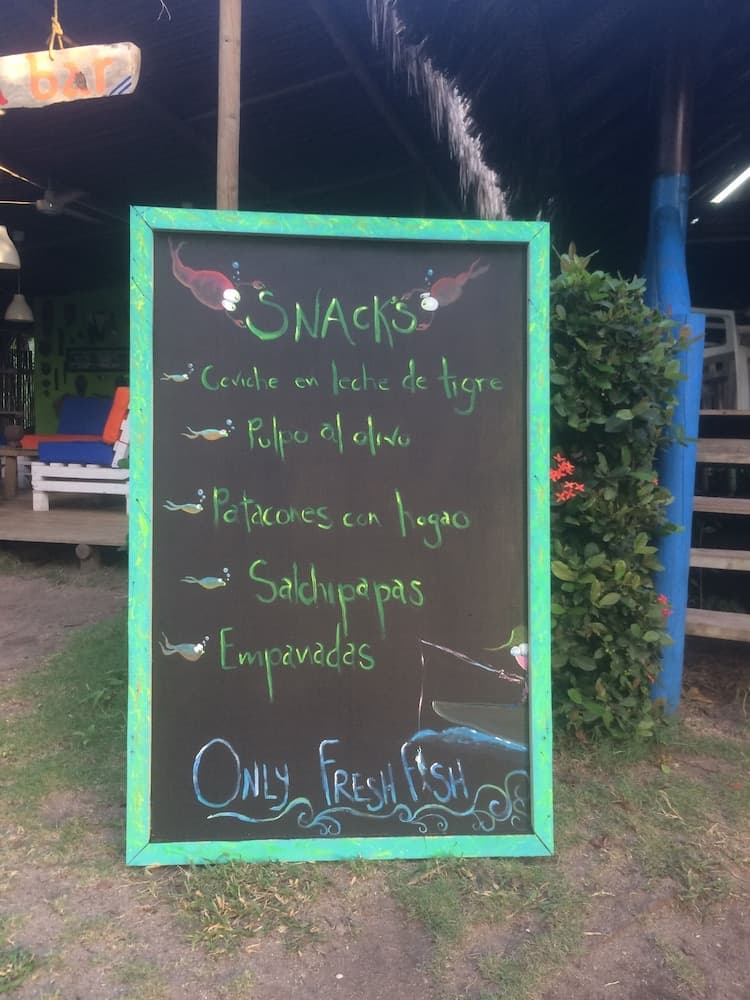 bar
SNACK'S
Ceviche en leche de tigre
Pulpo al olivo
Patacones con hogao
Salchipapas
Empanadas
ONLY FRESH FISH